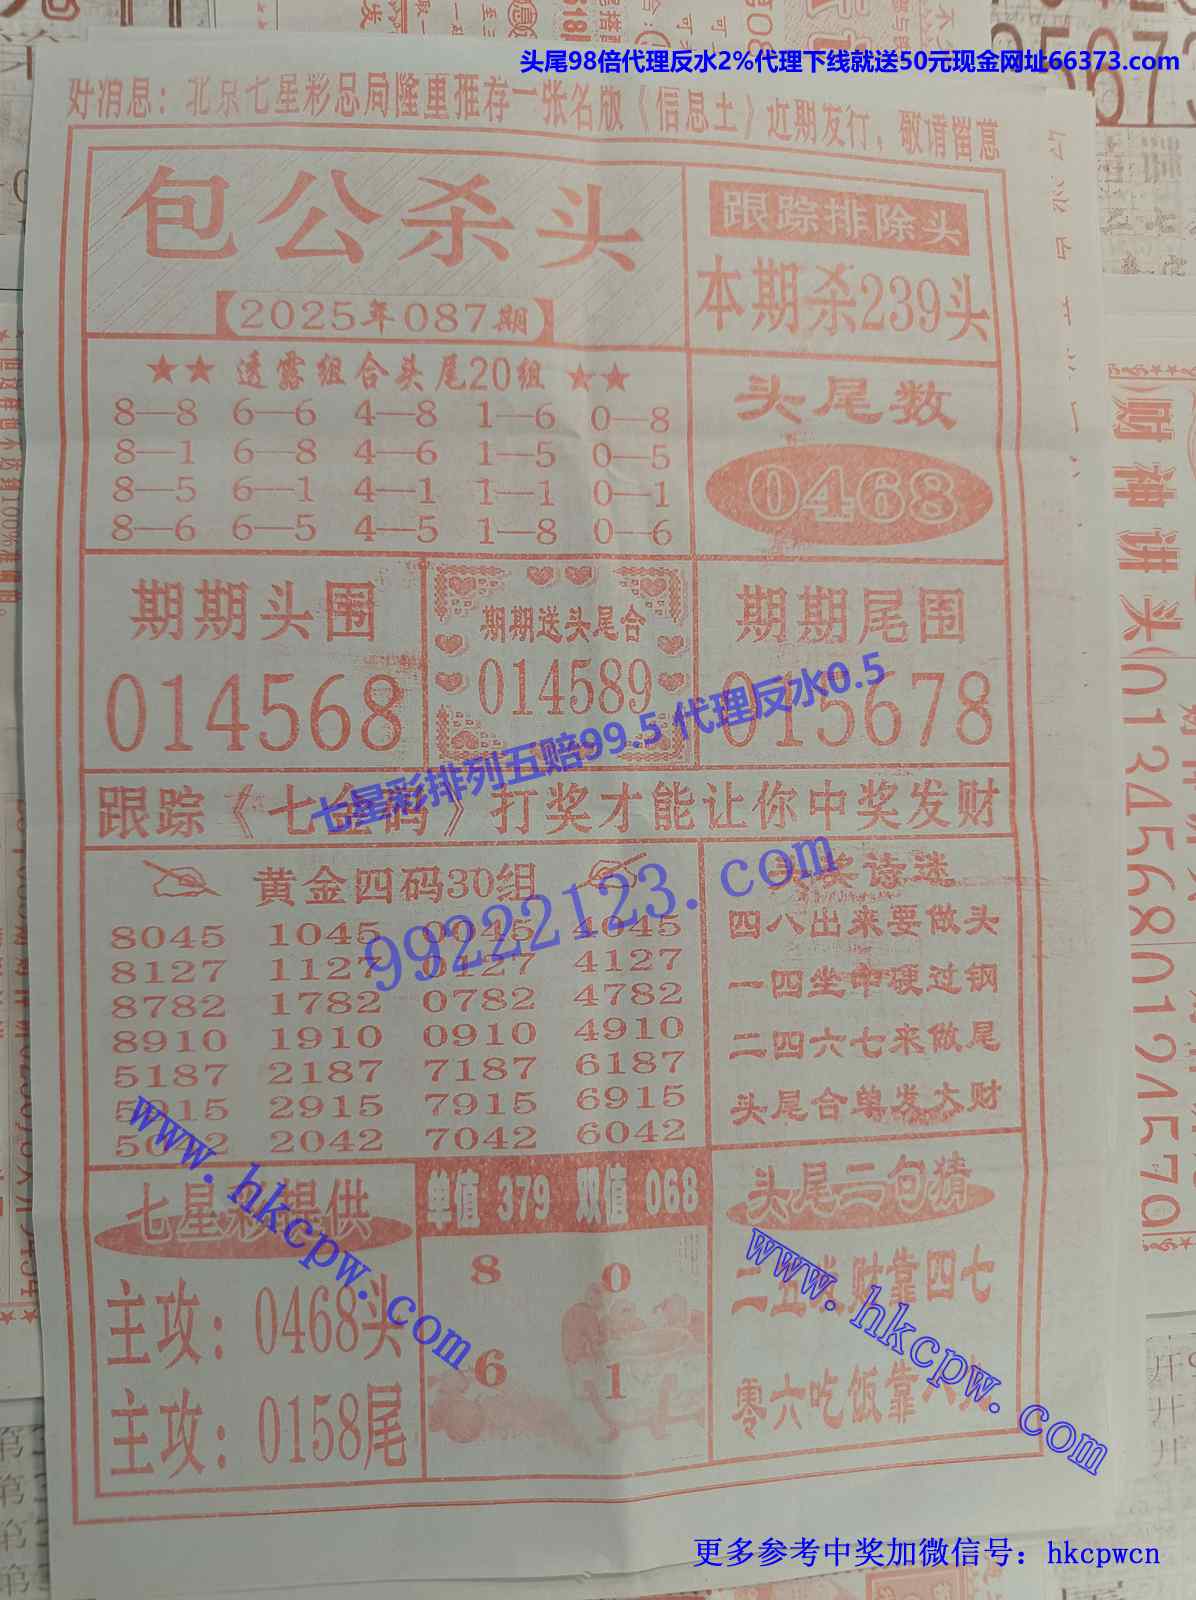 头尾98倍代理反水2%代理下线就送50元现金网址66373.com
好消息：北京七星彩总局隆重推荐一张名版《信息土》近期发行，敬请留意
包公杀头
【2025年087期】
跟踪排除头
本期杀239头
★★ 透露组合头尾20组 ★★
8—8 6—6 4—8 1—6 0—8
8—1 6—8 4—6 1—5 0—5
8—5 6—1 4—1 1—1 0—1
8—6 6—5 4—5 1—8 0—6
头尾数
0468
期期头围
014568
期期送头尾合
014589
期期尾围
015678
七星彩排列五赔99.5 代理反水0.5
跟踪《七金码》打奖才能让你中奖发财
99222123.com
黄金四码30组
8045 1045 0045 4045
8127 1127 0127 4127
8782 1782 0782 4782
8910 1910 0910 4910
5187 2187 7187 6187
5915 2915 7915 6915
5042 2042 7042 6042
头奖诗迷
四八出来要做头
一四坐中硬过钢
二四六七来做尾
头尾合单发大财
www.hkcpw.com
七星彩提供
主攻：0468头
主攻：0158尾
单值 379 双值 068
8 0
6 1
头尾二句猜
二五发财靠四七
零六吃饭靠八
www.hkcpw.com
财神讲头
01345680124579
更多参考中奖加微信号：hkcpwcn